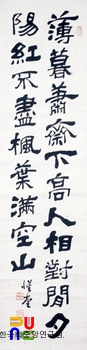 薄暮蕭齋下高人相對閒夕
陽紅不盡楓葉滿空山